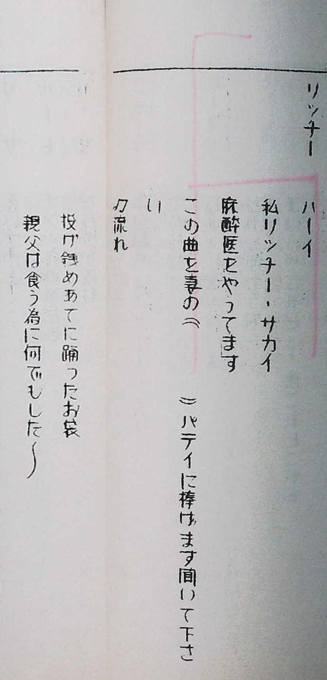 リッチー　ハーイ
私リッチー・サカイ
麻酔医をやってます
この曲を妻の《　　》パティに捧げます聞いて下さ
い
♫流れ
投げ銭めあてに踊ったお袋
親父は食う為に何でもした〜